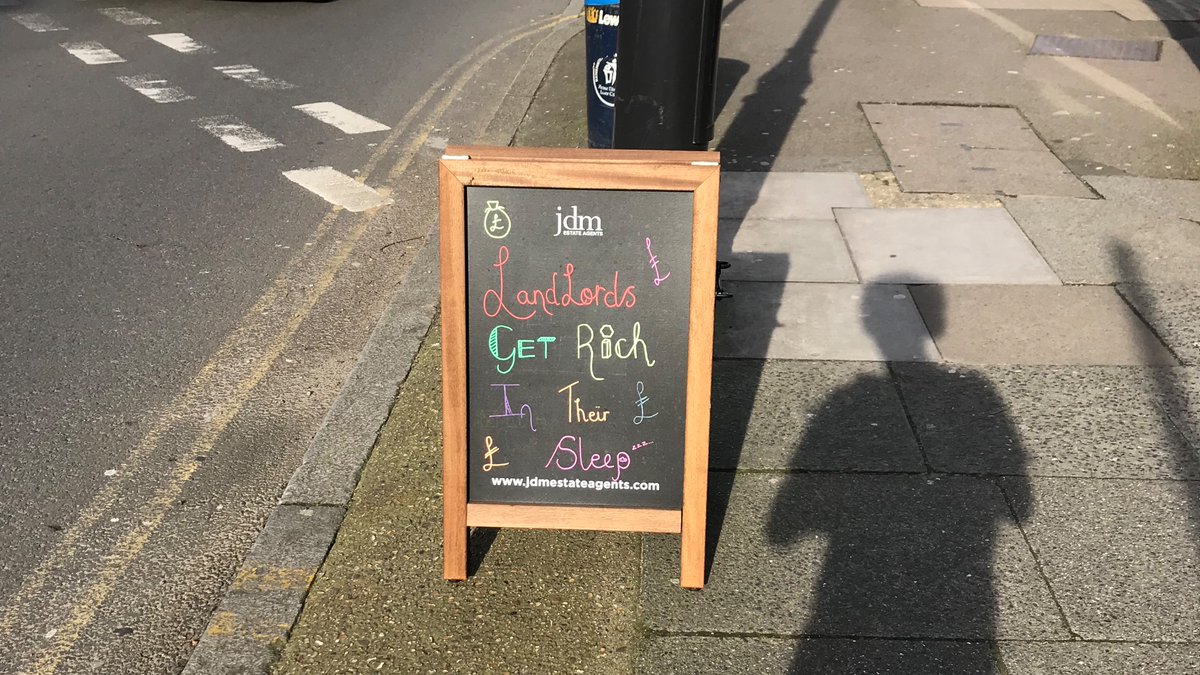 Lew
£
jdm
ESTATE AGENTS
£
LandLords
GET Rich
In Their £
£ Sleep zzz
www.jdmestateagents.com